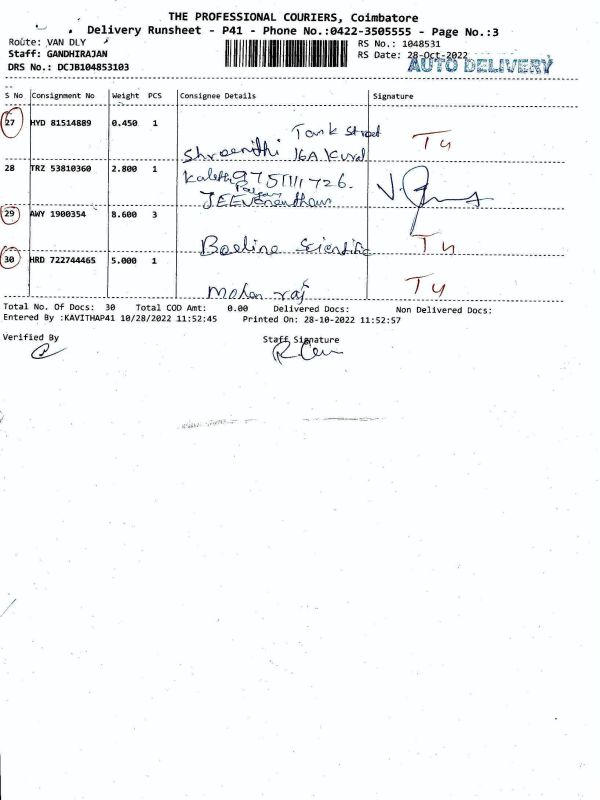 THE PROFESSIONAL COURIERS, Coimbatore
Delivery Runsheet - P41 - Phone No.:0422-3505555 - Page No.:3
Route: VAN DLY RS No.: 1048531
Staff: GANDHIRAJAN RS Date: 28-Oct-2022
DRS No.: DCJB104853103 AUTO DELIVERY
S No Consignment No Weight PCS Consignee Details Signature
27 HYD 81514889 0.450 1 Tank Street
Shreenithi 16A
28 TRZ 53810360 2.800 1
29 AWY 1900354 8.600 3
Beeline Scientific
30 HRD 722744465 5.000 1
Mohan raj
Total No. Of Docs: 30 Total COD Amt: 0.00 Delivered Docs: Non Delivered Docs:
Entered By :KAVITHAP41 10/28/2022 11:52:45 Printed On: 28-10-2022 11:52:57
Verified By Staff Signature